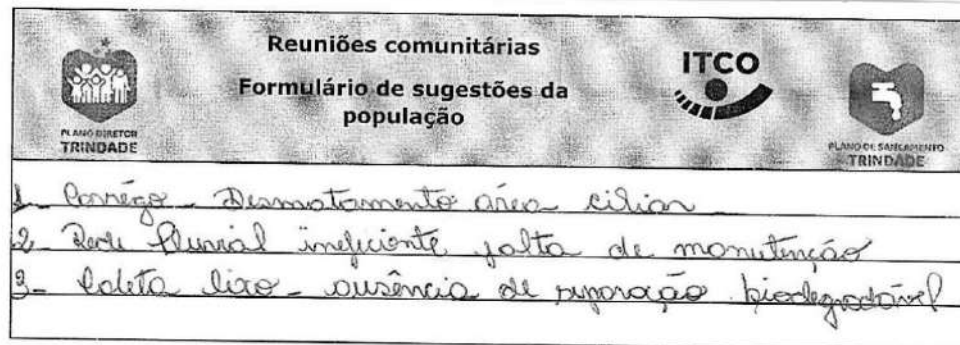 Reuniões comunitárias
Formulário de sugestões da
população
ITCO
PLANO DIRETOR
TRINDADE
PLANO DE SANEAMENTO
TRINDADE
1- Corrégo - Desmatamento área ciliar
2- Rede Pluvial ineficiente falta de manutenção
3- Coleta lixo - ausência de separação biodegradável